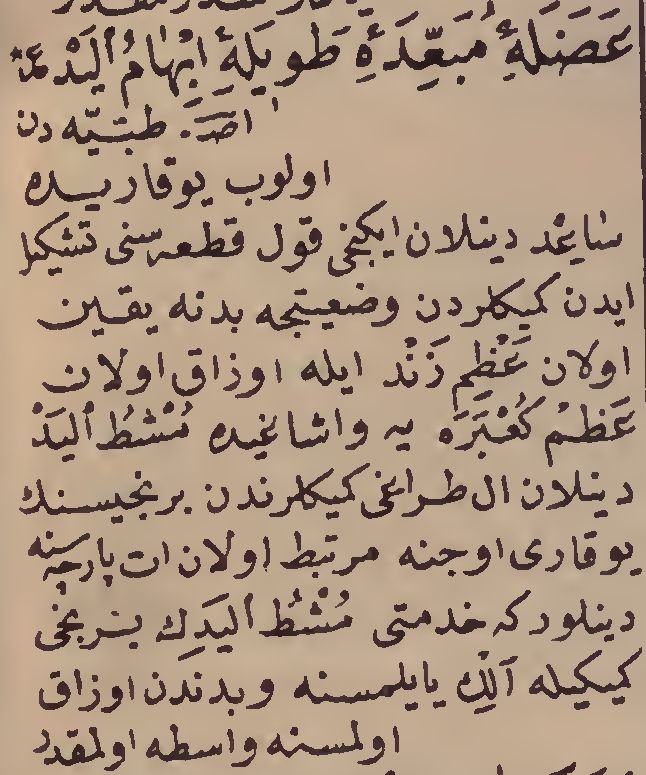 عَضَلَهٔ مُبَعِّدَهٔ طَوِیلَهٔ اِبْهَامُ اَلْیَدْ
اصـ. طبیّه دن
اولوب یوقاریسده
ساعد دینلان ایکنجی قول قطعه سنی تشکیل
ایدن کمیکلردن وضعیتجه بدنه یقین
اولان عَظْمِ زَنْد ایله اوزاق اولان
عَظْمِ کُعْبَرَه یه واشاغیده مُشْطُ اَلْیَدْ
دینلان ال طراغی کمیکلرندن برنجیسنك
یوقاری اوجنه مرتبط اولان ات پارچه سنه
دینلور که خدمتی مُشْطُ اَلْیَدِك برنجی
کمیکیله اَلِك یایلمسنه وبدندن اوزاق
اولمسنه واسطه اولمقدر